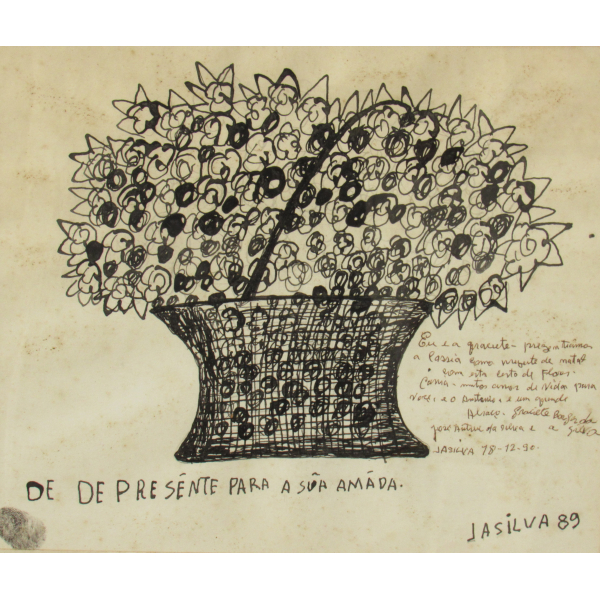 Eu e a graciete - prezentiamos
a Cassia como prezente de natal
com esta cesto de flores.
Cassia - muitos anos de vida para
voce, e o Antonio, e um grande
Abraço. graciete Borges da
José Antonio da Silva e a Silva
JASILVA 18-12-90.
DE DE PRESÉNTE PARA A SŨA AMÁDA.
JASILVA 89